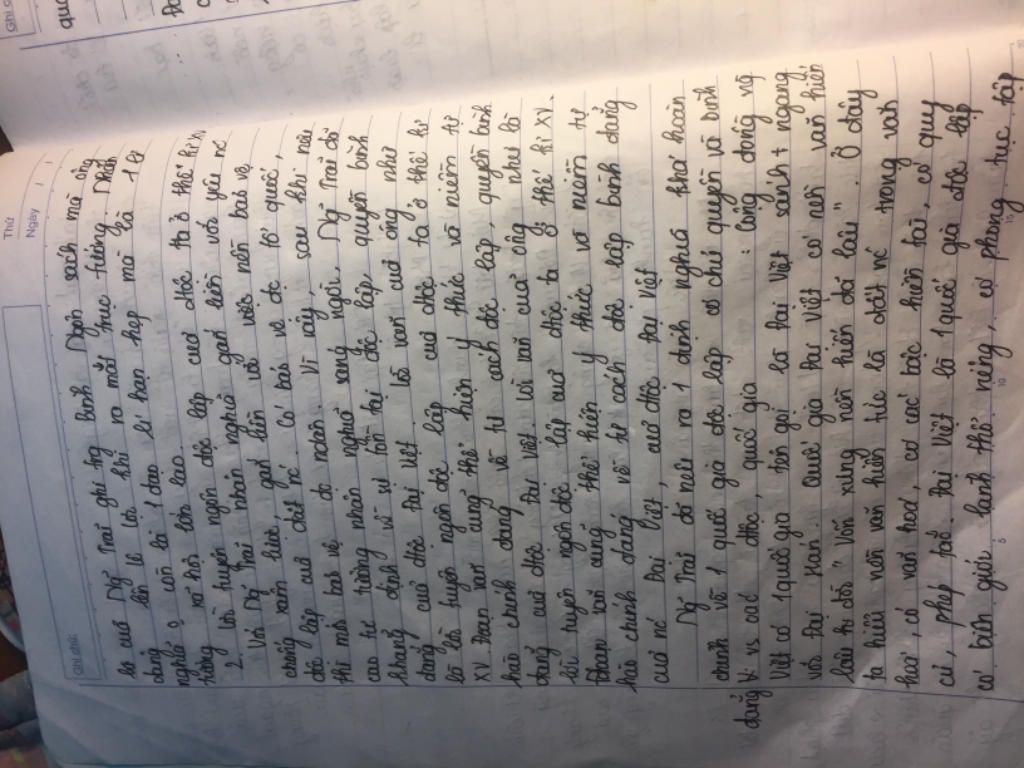 Thứ
Ngày
Ghi chú:
là của Ng Trãi ghi trg Bình Ngôn sách mà ông
dâng lên Lê Lợi khi ra mắt trực tướng. Nhân
nghĩa o còn là 1 đạo lí hạn hẹp mà là 1 lí
tưởng xã hội lớn lao
2. Lời tuyên ngôn độc lập của dtộc ta ở thế kỉ XV
Với Ng Trãi nhân nghĩa gắn liền với yêu nc
chống xâm lược, gắn liền với việc nền bảo vệ
độc lập của đất nc. Có bảo vệ đc tổ quốc,
thì mới bảo vệ đc ndân. Vì vậy, sau khi nêu
cao tư tưởng nhân nghĩa sáng ngời, Ng Trãi đã
khẳng định về sự tồn tại độc lập, quyền bình
đẳng của dtộc Đại Việt. Lời văn của ông như
là lời tuyên ngôn độc lập của dtộc ta ở thế kỉ
XV Đoạn văn cũng thể hiện ý thức và niềm tự
hào chính đáng về tư cách độc lập, quyền bình
đẳng của dtộc Đại Việt. Lời văn của ông như là
lời tuyên ngôn độc lập của dtộc ta ở thế kỉ XV.
Đoạn văn cũng thể hiện ý thức và niềm tự
hào chính đáng về tư cách độc lập bình đẳng
của nc Đại Việt, của dtộc Đại Việt
Ng Trãi đã nêu ra 1 định nghĩa khá hoàn
chỉnh về 1 quốc gia độc lập có chủ quyền và bình
đẳng vs các dtộc, quốc gia : Cộng đồng ng
Việt có 1 quốc gia tên gọi là Đại Việt sánh + ngang
với Đại Hán. Quốc gia Đại Việt có nền văn hiến
lâu đời "Vốn xưng nền hiến đã lâu". Ở đây
ta hiểu nền văn hiến tức là đất nc trong văn
hoá, có văn hoá, có các bậc hiền tài, có quy
củ, phép tắc. Đại Việt là 1 quốc gia độc lập
có biên giới lãnh thổ riêng, có phong tục tập